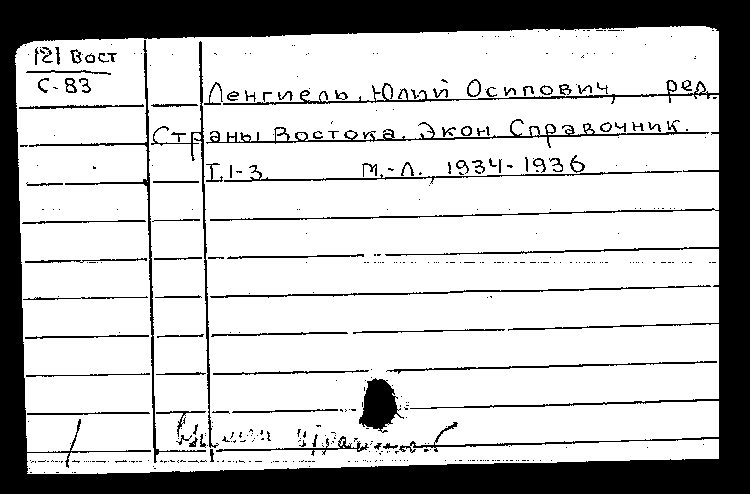 121 Вост
С-83
Ленгиель, Юлий Осипович, ред.
Страны Востока. Экон. Справочник.
Т.1-3. М.-Л., 1934-1936